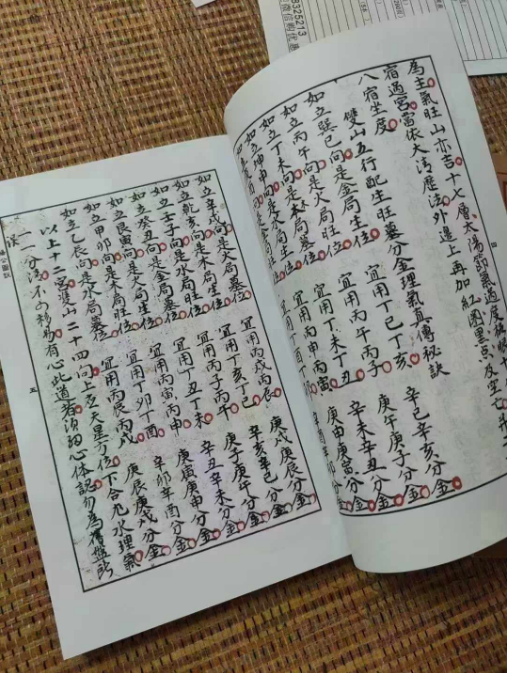 為主氣旺山亦吉十七層太陽節氣過度後
宿過宮當依大清歷法外邊上再加紅圈黑点及空亡
八宿坐度
雙山五行配生旺墓分金理氣真傳秘訣
如立巽巳向是金局生位 宜用丁巳丁亥 辛巳辛亥分金
如立丙午向是火局旺位 宜用丙午丙子 庚午庚子分金
如立丁未向是木局墓位 宜用丁未丁丑 辛未辛丑分金
如立坤申向是 宜用丙申丙寅 庚申庚寅分金
四
如立辛戌向是火局墓位 宜用丙戌丙辰 庚戌庚辰分金
如立乾亥向是木局生位 宜用丁亥丁巳 辛亥辛巳分金
如立壬子向是水局旺位 宜用丙子丙午 庚子庚午分金
如立癸丑向是金局墓位 宜用丁丑丁未 辛丑辛未分金
如立艮寅向是火局生位 宜用丙寅丙申 庚寅庚申分金
如立甲卯向是木局旺位 宜用丁卯丁酉 辛卯辛酉分金
如立乙辰向是水局墓位 宜用丙辰丙戌 庚辰庚戌分金
以上十二宮雙山二十四向上應天星方位下合九水理氣
一定分法不可移易有心此道者須細心體認勿為舊盤所
誤
五